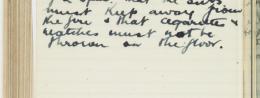 that the
must keep away from
the fire & that cigarettes &
matches must not be
thrown on the floor.